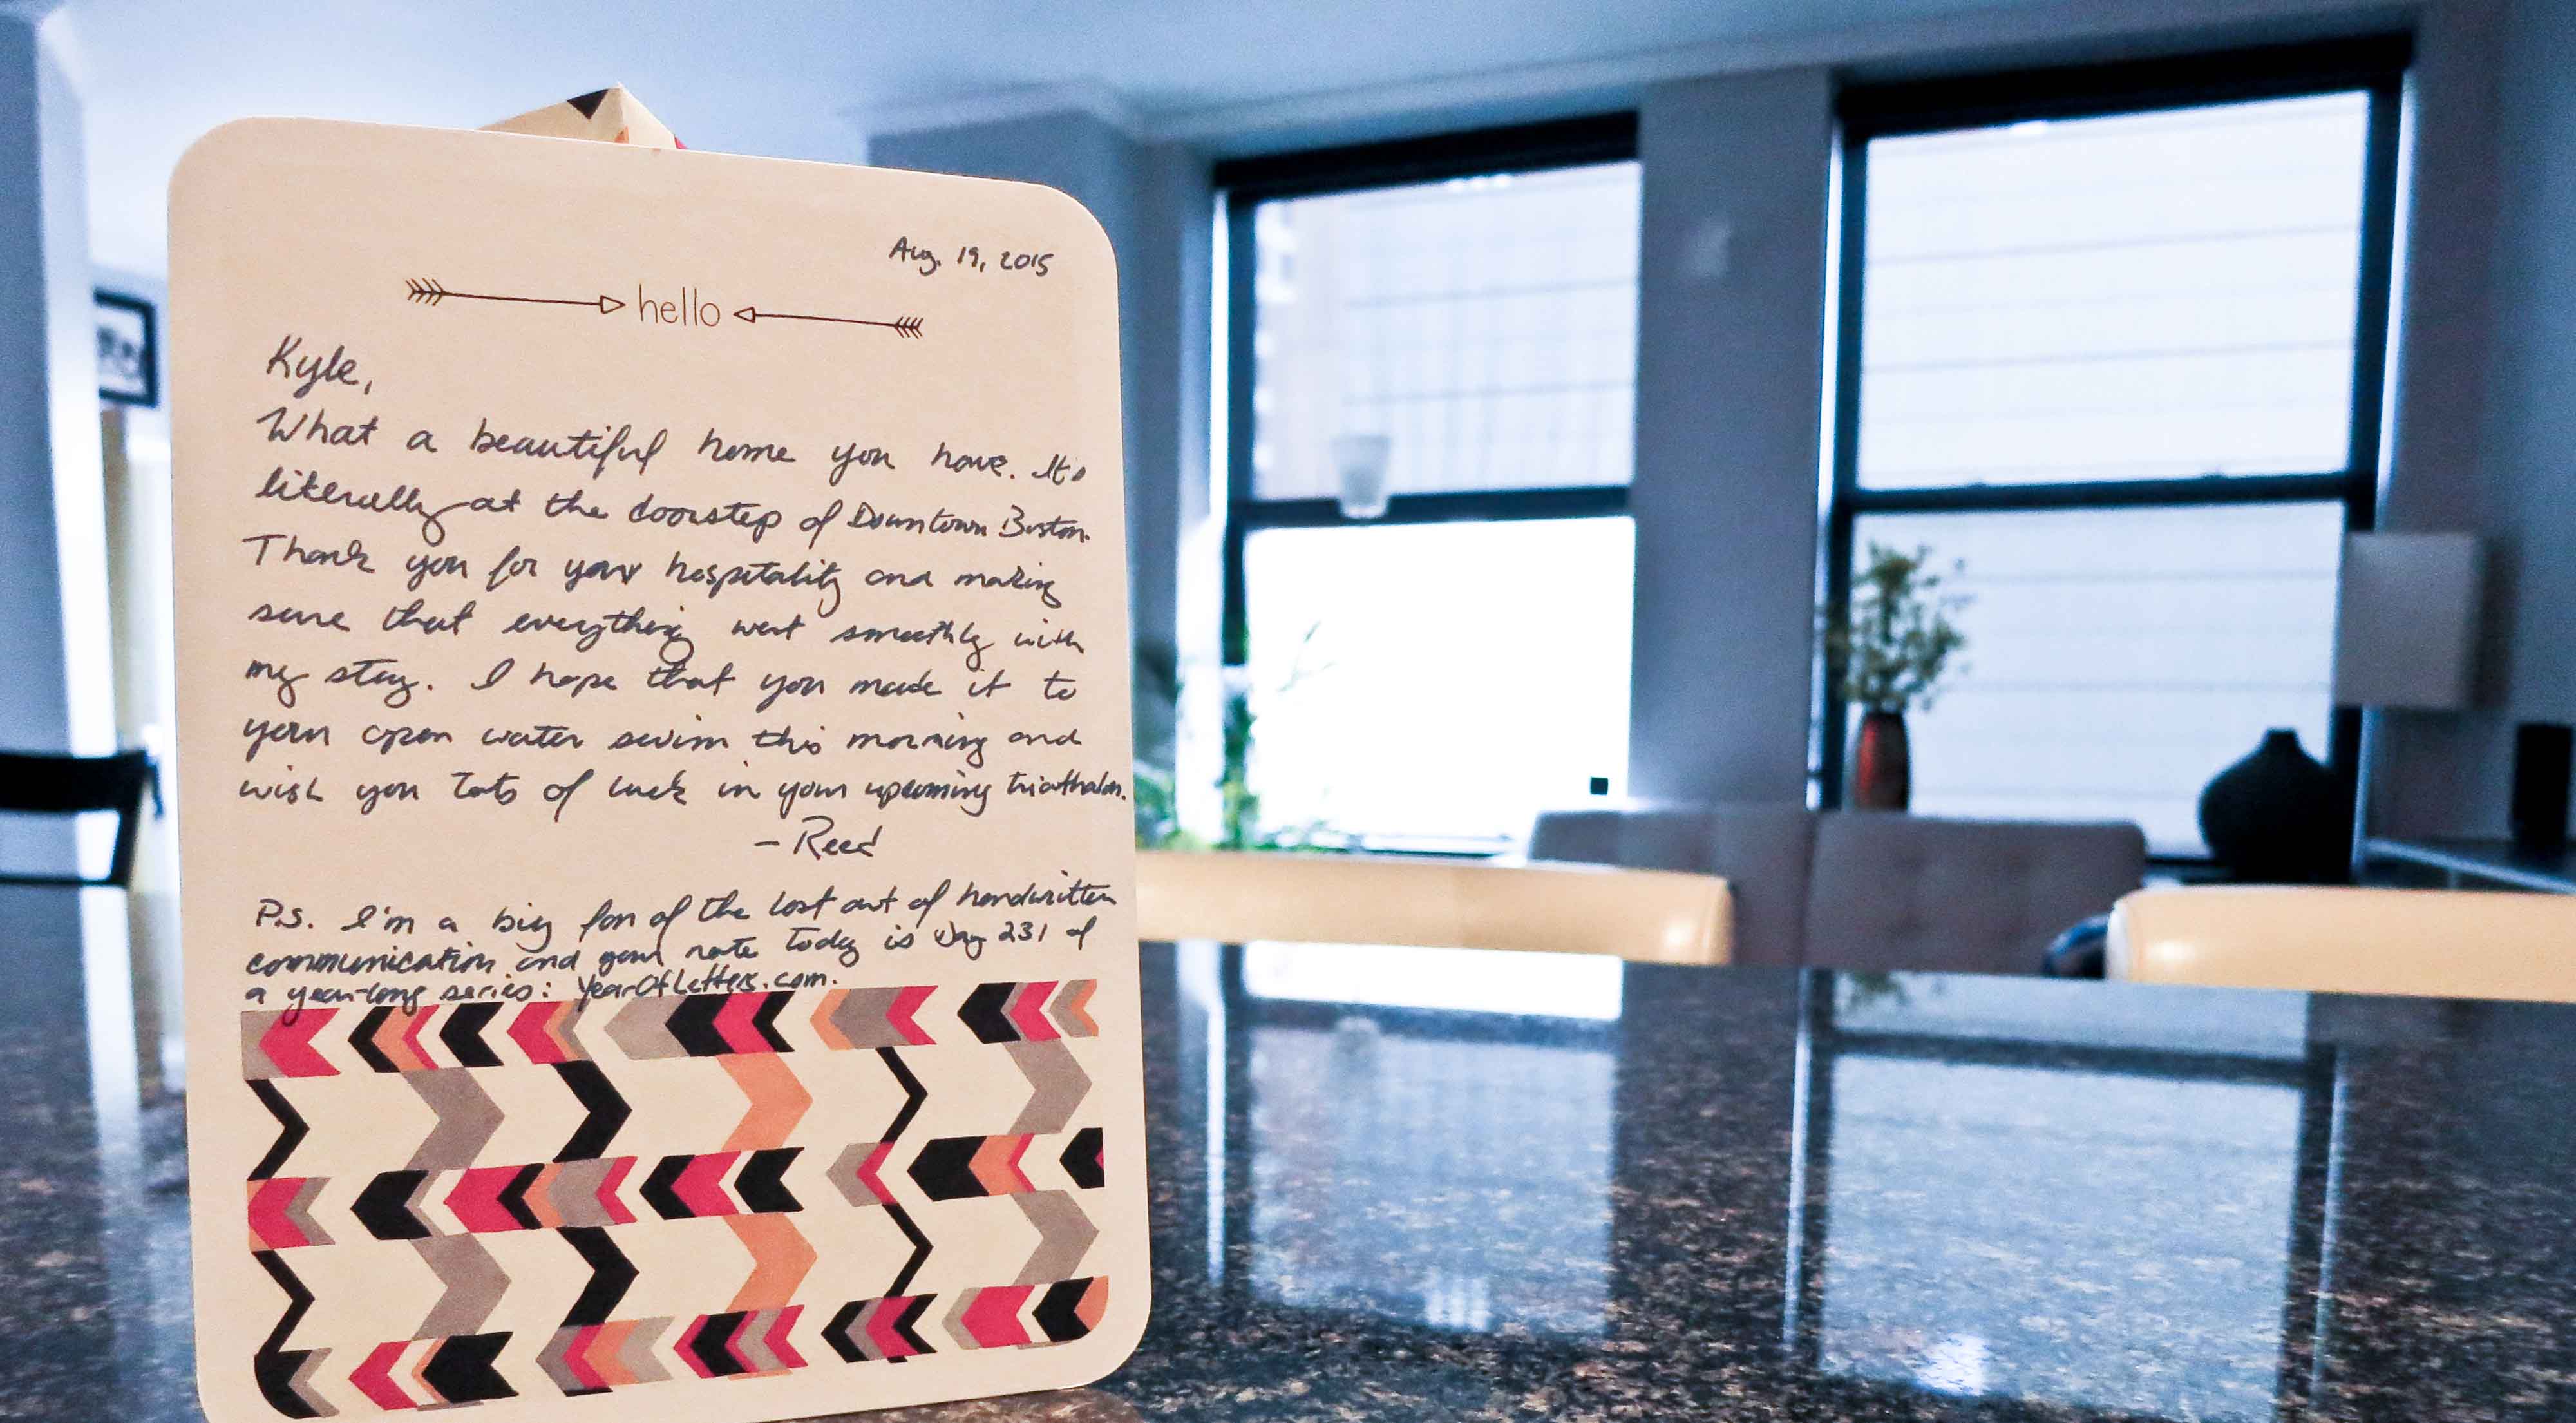 Aug. 19, 2015
hello
Kyle,
What a beautiful home you have. It's
literally at the doorstep of Downtown Boston.
Thank you for your hospitality and making
sure that everything went smoothly with
my stay. I hope that you made it to
your open water swim this morning and
wish you lots of luck in your upcoming triathalon.
- Reed
P.S. I'm a big fan of the lost art of handwritten
communication and your note today is Day 231 of
a year-long series: YearOfLetters.com.